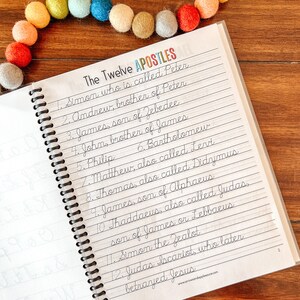 The Twelve APOSTLES
1. Simon who is called Peter
2. Andrew, brother of Peter
3. James, son of Zebedee
4. John, brother of James
5. Philip 6. Bartholomew
7. Matthew, also called Levi
8. Thomas, also called Didymus
9. James, son of Alphaeus
10. Thaddaeus, also called Judas,
son of James or Lebbaeus
11. Simon the Zealot
12. Judas Iscariot who later
betrayed Jesus